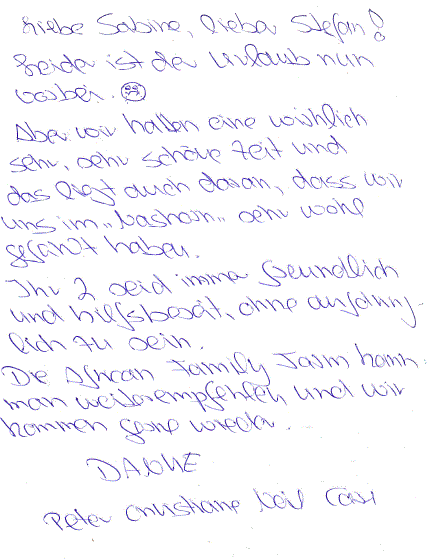 Liebe Sabine, lieber Stefan!
Leider ist der Urlaub nun
vorbei.
Aber wir hatten eine wirklich
sehr, sehr schöne Zeit und
das liegt auch daran, dass wir
uns im „ “ sehr wohl
gefühlt haben.
Ihr 2 seid immer freundlich
und hilfsbereit, ohne aufdring-
lich zu sein.
Die African Family Farm kann
man weiterempfehlen und wir
kommen gerne wieder.
DANKE
Peter Christiane